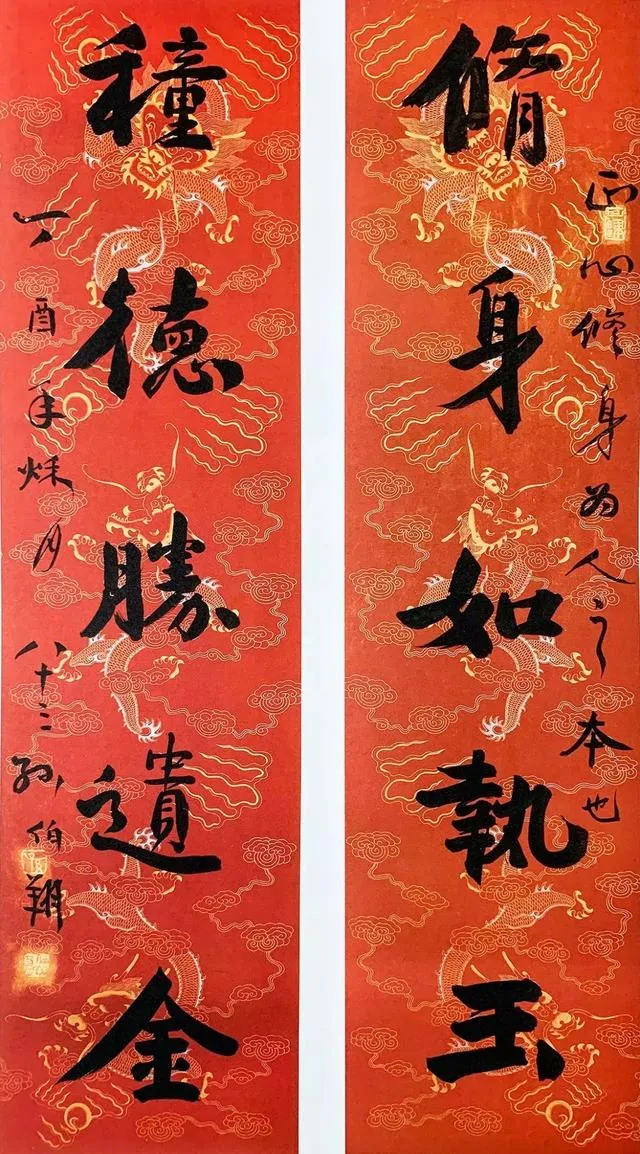 正心修身为人之本也
脩身如執玉
穜德勝遺金
丁酉年秌月 八十三孙伯翔